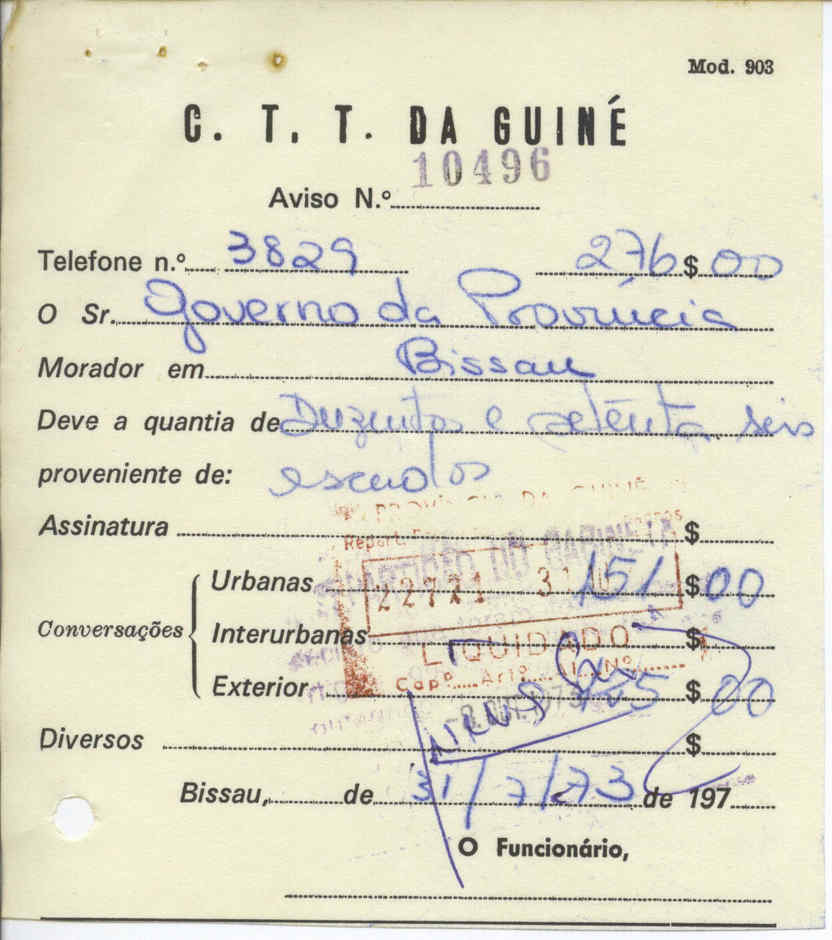 Mod. 903
C. T. T. DA GUINÉ
10496
Aviso N.º
Telefone n.º 3829 276 $ 00
O Sr. Governo da Província
Morador em Bissau
Deve a quantia de Duzentos e setenta seis
proveniente de: escudos
PROVÍNCIA DA GUINÉ
Assinatura $
Urbanas 151 $ 00
22771 31
Conversações
Interurbanas $
LIQUIDADO
Cap.º Art.º N.º
Exterior 125 $ 00
Diversos $
Bissau, de 31/7/73 de 197
O Funcionário,